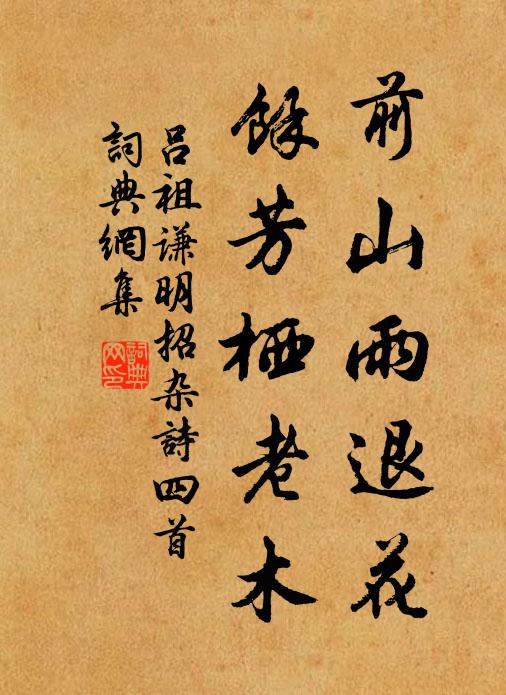 前山雨退花
餘芳栖老木
吕祖谦明招杂詩四首
詞典網集
詞典網印